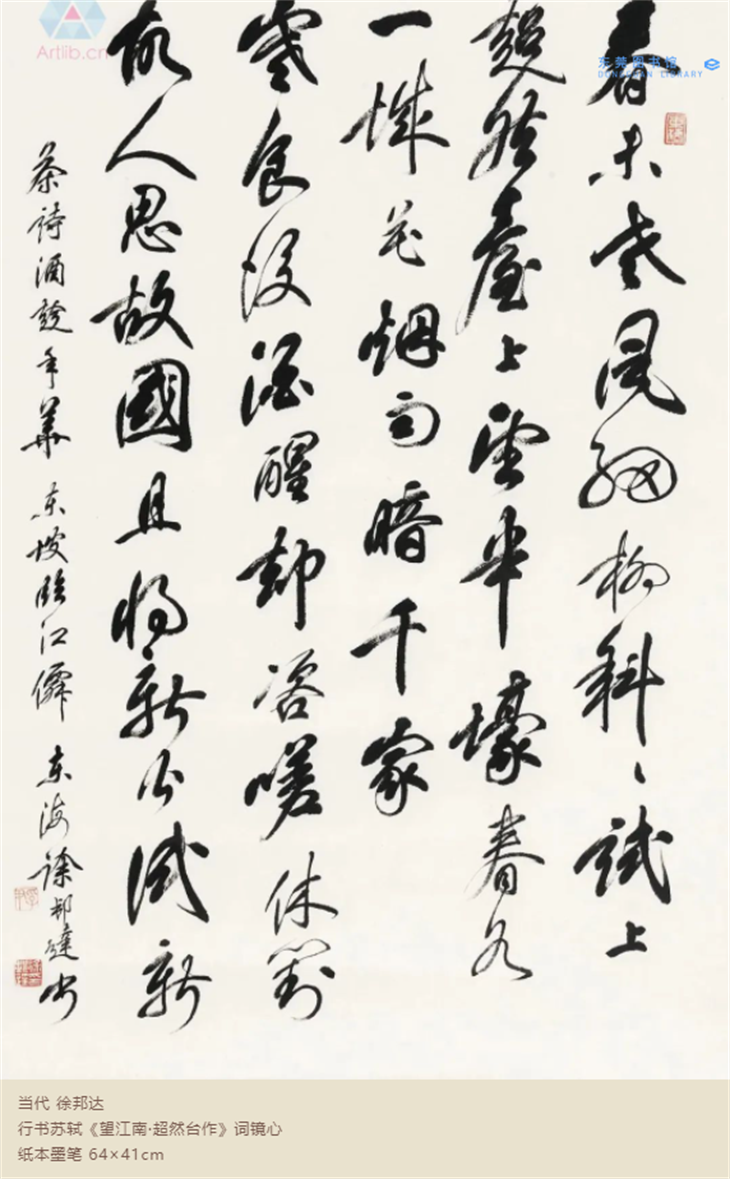 春未老風細柳斜〻試上
超然臺上望半壕春水
一城花烟雨暗千家
寒食後酒醒却咨嗟休對
故人思故國且将新火試新
茶詩酒趁年華 东坡臨江僊 东海徐邦達书
Artlib.cn
东莞图书馆
DONGGUAN LIBRARY
当代 徐邦达
行书苏轼《望江南·超然台作》词镜心
纸本墨笔 64×41cm